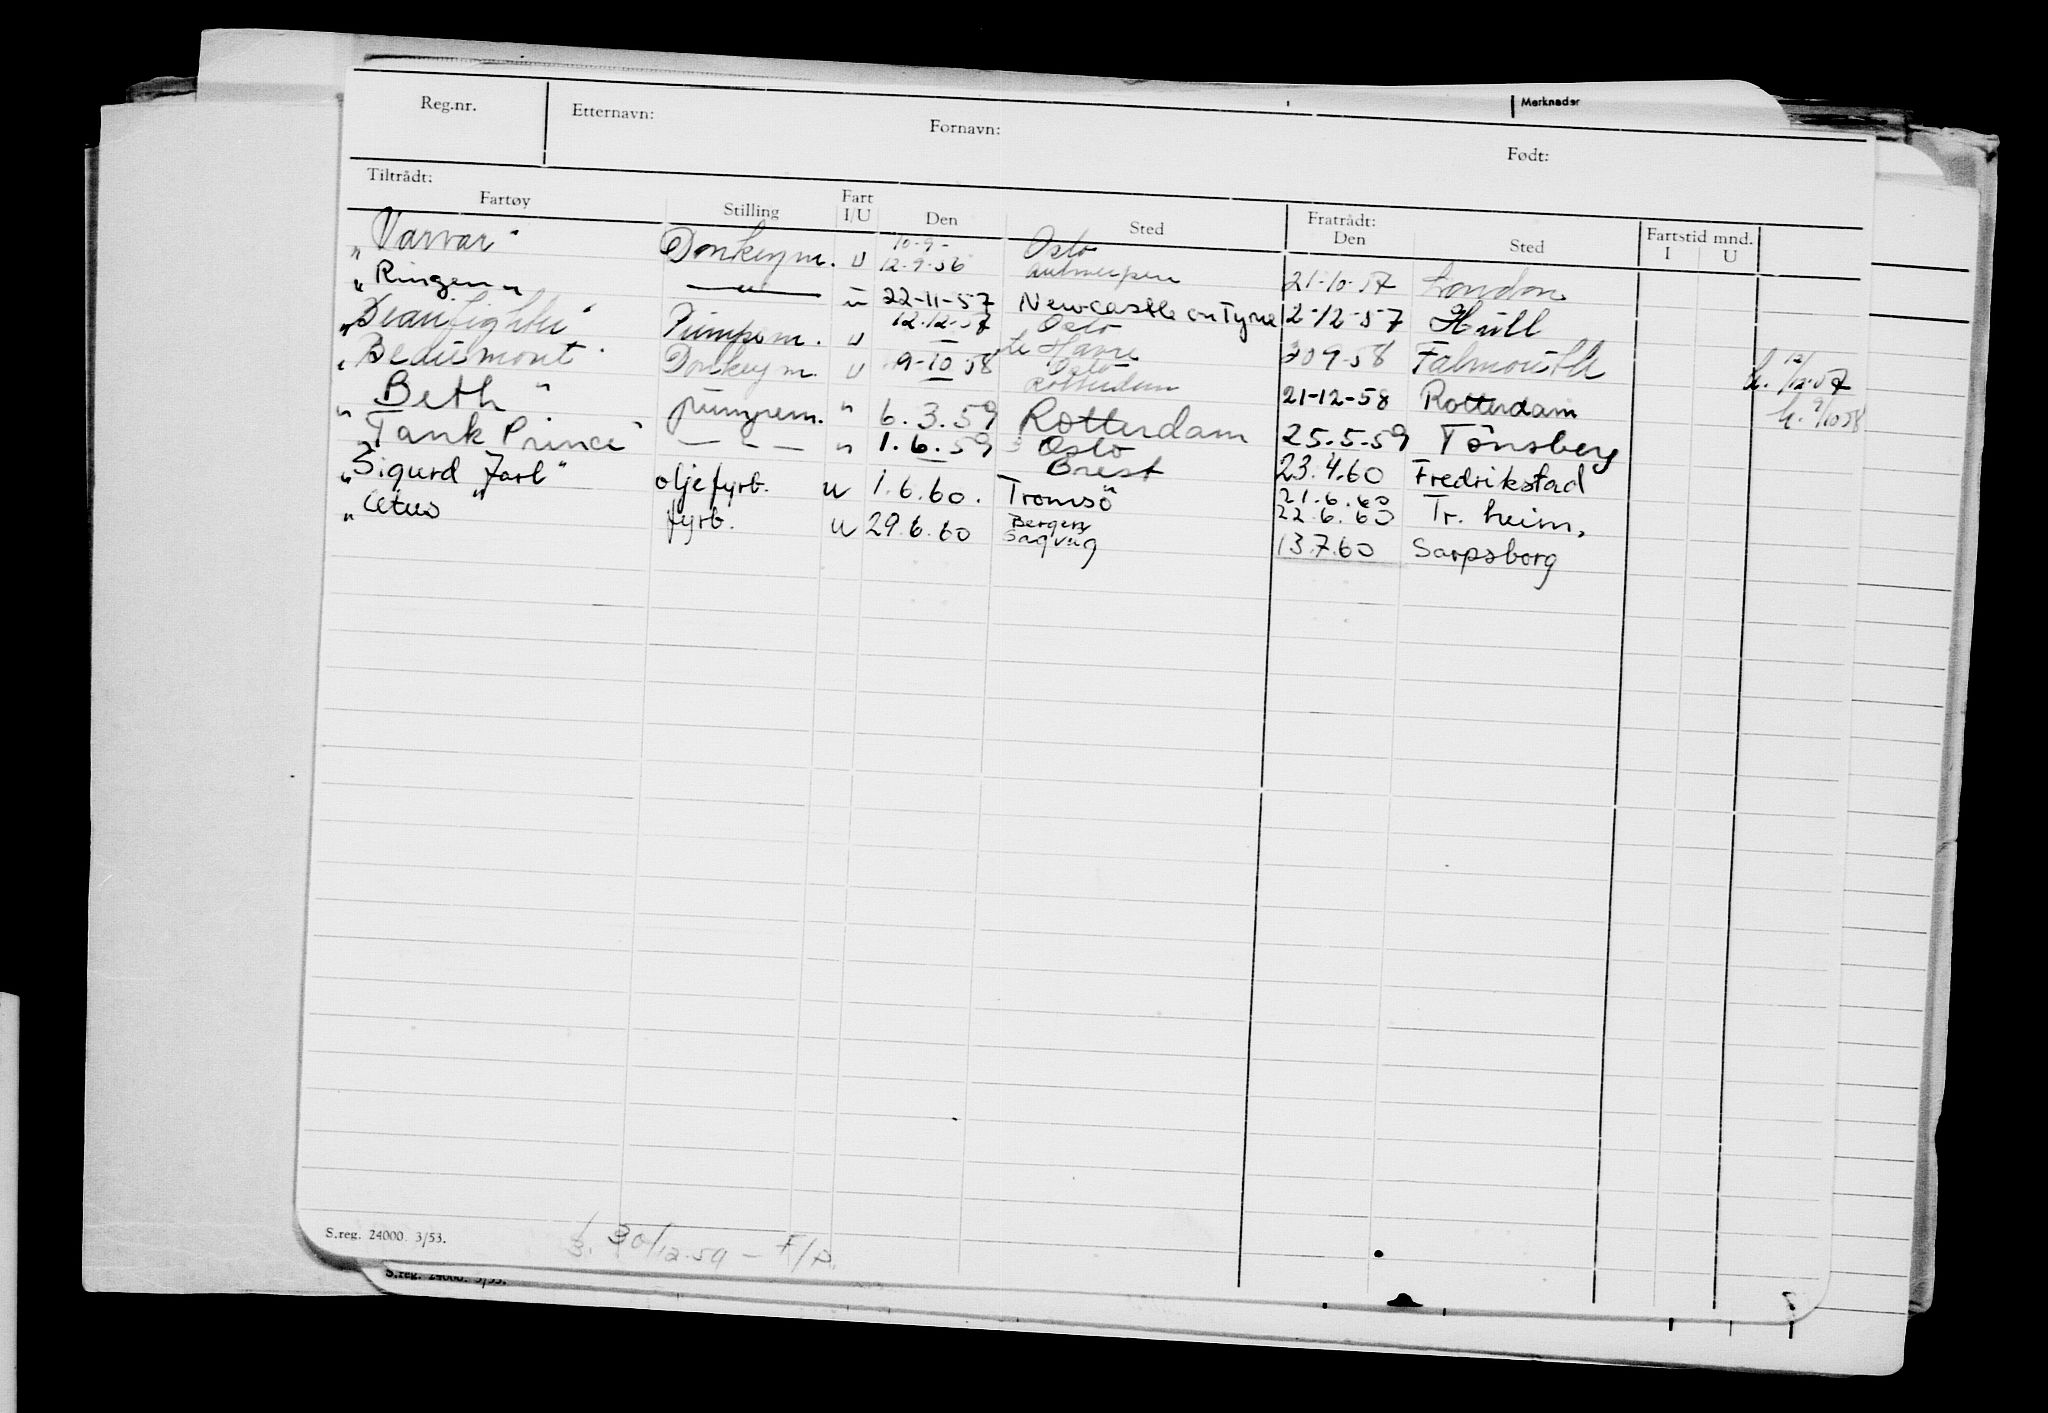 Reg.nr. Etternavn: Fornavn: Merknader
Født:
Tiltrådt: Fratrådt:
Fartøy Stilling Fart I/U Den Sted Den Sted Fartstid mnd. I U
"Varvar" Donkeym. u 10-9- 12-9-56 Oslo Antwerpen 21-10-57 London
"Ringen" —"— u 22-11-57 Newcastle on Tyne 2-12-57 Hull
"Beaufighter" Pumpem. u 12-12-57 Oslo le Havre 30 9-58 Falmouth h. 12/12-57
"Beaumont" Donkeym. u 9-10-58 Oslo Rotterdam 21-12-58 Rotterdam h. 9/10 58
"Beth" pumpem. " 6.3.59 Rotterdam 25.5.59 Tönsberg
"Tank Prince" — - — " 1.6.59 Oslo Brest 23.4.60 Fredrikstad
"Sigurd Jarl" oljefyrb. u 1.6.60. Tromsö 21.6.60 22.6.60 Tr. heim,
"Cetus" fyrb. u 29.6.60 Bergen Sagvåg 13.7.60 Sarpsborg
S.reg. 24000. 3/53.
30/12.59 — F/P.
S.reg. 24000. 3/53.